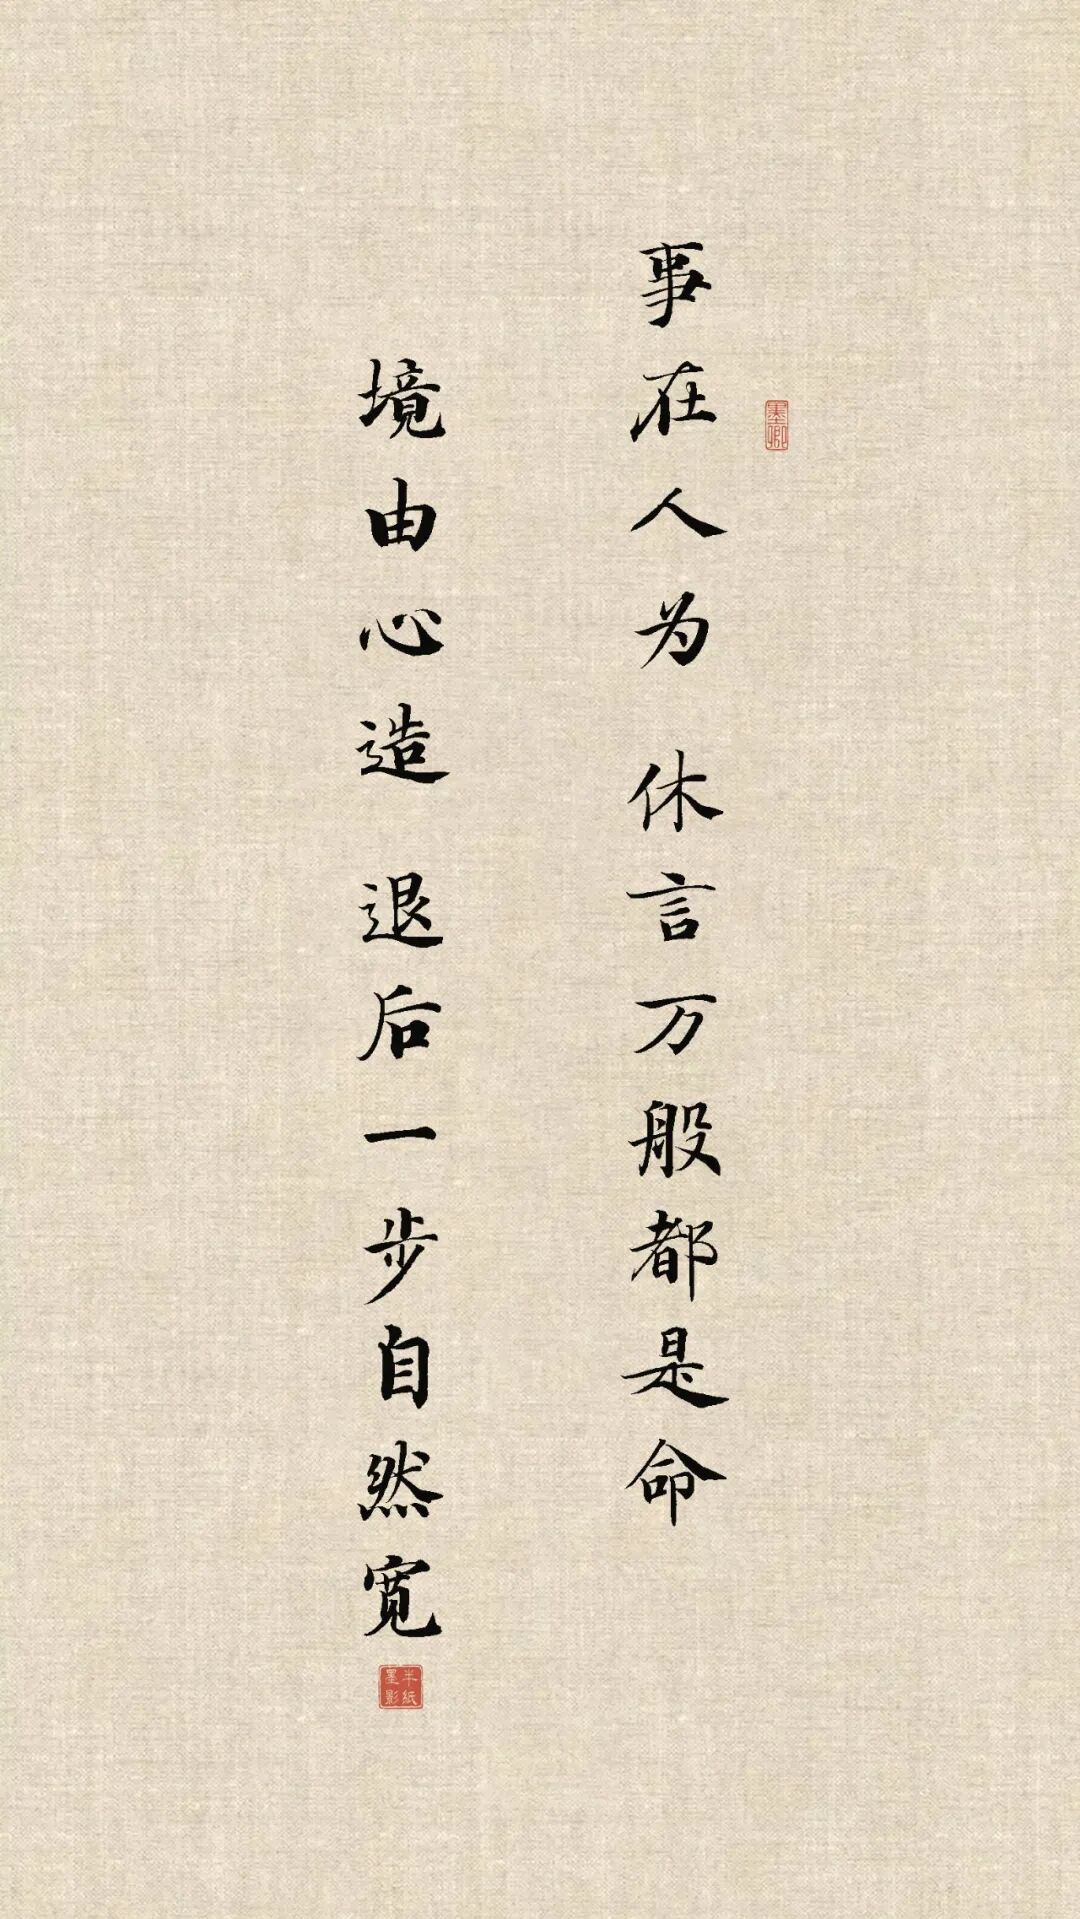 事在人为 休言万般都是命
境由心造 退后一步自然宽
半纸
墨影